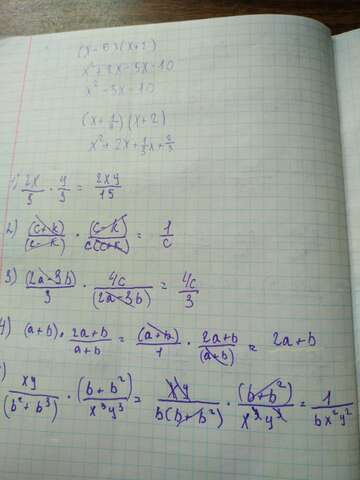 (x-5)(x+2)
x²+2x-5x-10
x²-3x-10
(x+1/3)(x+2)
x²+2x+1/3x+2/3
1) 2x/5 · y/3 = 2xy/15
2) (c+k)/(c-k) · (c-k)/c(c+k) = 1/c
3) (2a-3b)/3 · 4c/(2a-3b) = 4c/3
4) (a+b) · 2a+b/a+b = (a+b)/1 · 2a+b/(a+b) = 2a+b
xy/(b²+b³) · (b+b²)/x³y³ = xy/b(b+b²) · (b+b²)/x³y³ = 1/bx²y²